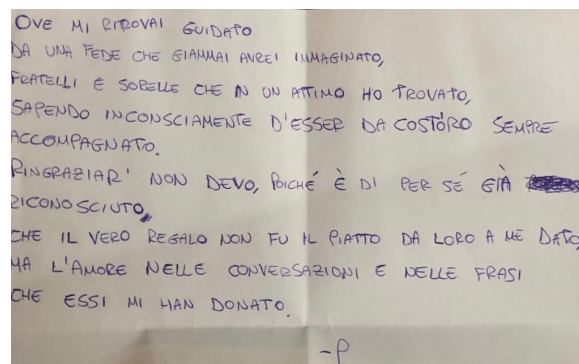 OVE MI RITROVAI GUIDATO
DA UNA FEDE CHE GIAMMAI AVREI IMMAGINATO,
FRATELLI E SORELLE CHE IN UN ATTIMO HO TROVATO,
SAPENDO INCONSCIAMENTE D'ESSER DA COSTÓRO SEMPRE
ACCOMPAGNATO.
RINGRAZIAR' NON DEVO, POICHÉ È DI PER SÉ GIÀ
RICONOSCIUTO,
CHE IL VERO REGALO NON FU IL PIATTO DA LORO A ME DATO,
MA L'AMORE NELLE CONVERSAZIONI E NELLE FRASI
CHE ESSI MI HAN DONATO.
-P